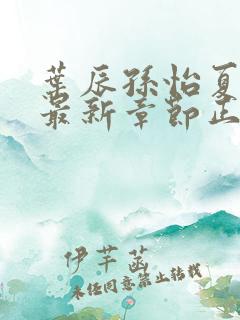 叶辰孙怡夏
最新章节正
伊芊菡
未经同意禁止转载